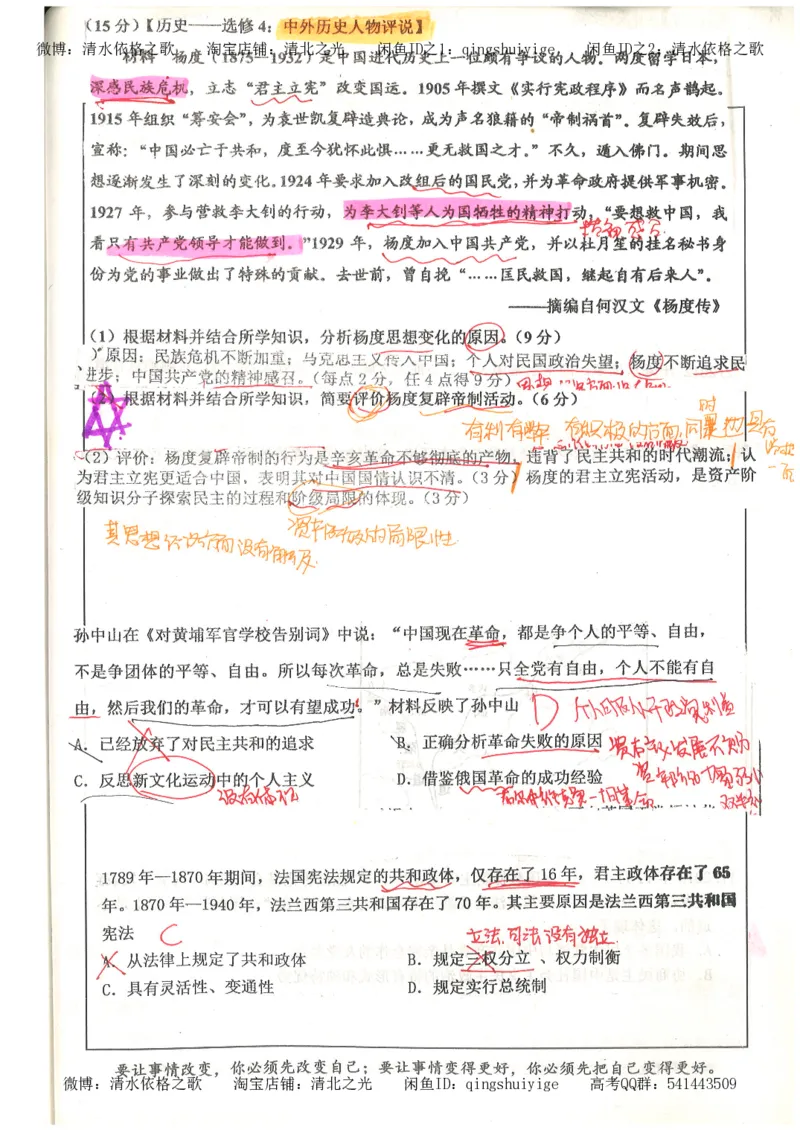 （15分）【历史——选修4：中外历史人物评说】
微博：清水依格之歌 淘宝店铺：清北之光 闲鱼ID之1：qingshuiyige 闲鱼ID之2：清水依格之歌
材料 杨度（1875—1932）是中国近代历史上一位颇有争议的人物。两度留学日本，
深感民族危机，立志“君主立宪”改变国运。1905年撰文《实行宪政程序》而名声鹊起。
1915年组织“筹安会”，为袁世凯复辟造典论，成为声名狼藉的“帝制祸首”。复辟失败后，
宣称：“中国必亡于共和，度至今犹怀此惧……更无救国之才。”不久，遁入佛门。期间思
想逐渐发生了深刻的变化。1924年要求加入改组后的国民党，并为革命政府提供军事机密。
1927年，参与营救李大钊的行动，为李大钊等人为国牺牲的精神打动，“要想救中国，我
看只有共产党领导才能做到。”1929年，杨度加入中国共产党，并以杜月笙的挂名秘书身
份为党的事业做出了特殊的贡献。去世前，曾自挽“……匡民救国，继起自有后来人”。
——摘编自何汉文《杨度传》
（1）根据材料并结合所学知识，分析杨度思想变化的原因。（9分）
）原因：民族危机不断加重；马克思主义传入中国；个人对民国政治失望；杨度不断追求民
进步；中国共产党的精神感召。（每点2分，任4点得9分）
（2）根据材料并结合所学知识，简要评价杨度复辟帝制活动。（6分）
（2）评价：杨度复辟帝制的行为是辛亥革命不够彻底的产物，违背了民主共和的时代潮流；认
为君主立宪更适合中国，表明其对中国国情认识不清。（3分）杨度的君主立宪活动，是资产阶
级知识分子探索民主的过程和阶级局限的体现。（3分）
孙中山在《对黄埔军官学校告别词》中说：“中国现在革命，都是争个人的平等、自由，
不是争团体的平等、自由。所以每次革命，总是失败……只全党有自由，个人不能有自
由，然后我们的革命，才可以有望成功。”材料反映了孙中山 D
A．已经放弃了对民主共和的追求 B．正确分析革命失败的原因
C．反思新文化运动中的个人主义 D．借鉴俄国革命的成功经验
没有体现
1789年—1870年期间，法国宪法规定的共和政体，仅存在了16年，君主政体存在了65
年。1870年—1940年，法兰西第三共和国存在了70年。其主要原因是法兰西第三共和国
宪法 C 立法.司法没有独立
A．从法律上规定了共和政体 B．规定三权分立、权力制衡
C．具有灵活性、变通性 D．规定实行总统制
要让事情改变，你必须先改变自己；要让事情变得更好，你必须先把自己变得更好。
微博：清水依格之歌 淘宝店铺：清北之光 闲鱼ID：qingshuiyige 高考QQ群：541443509